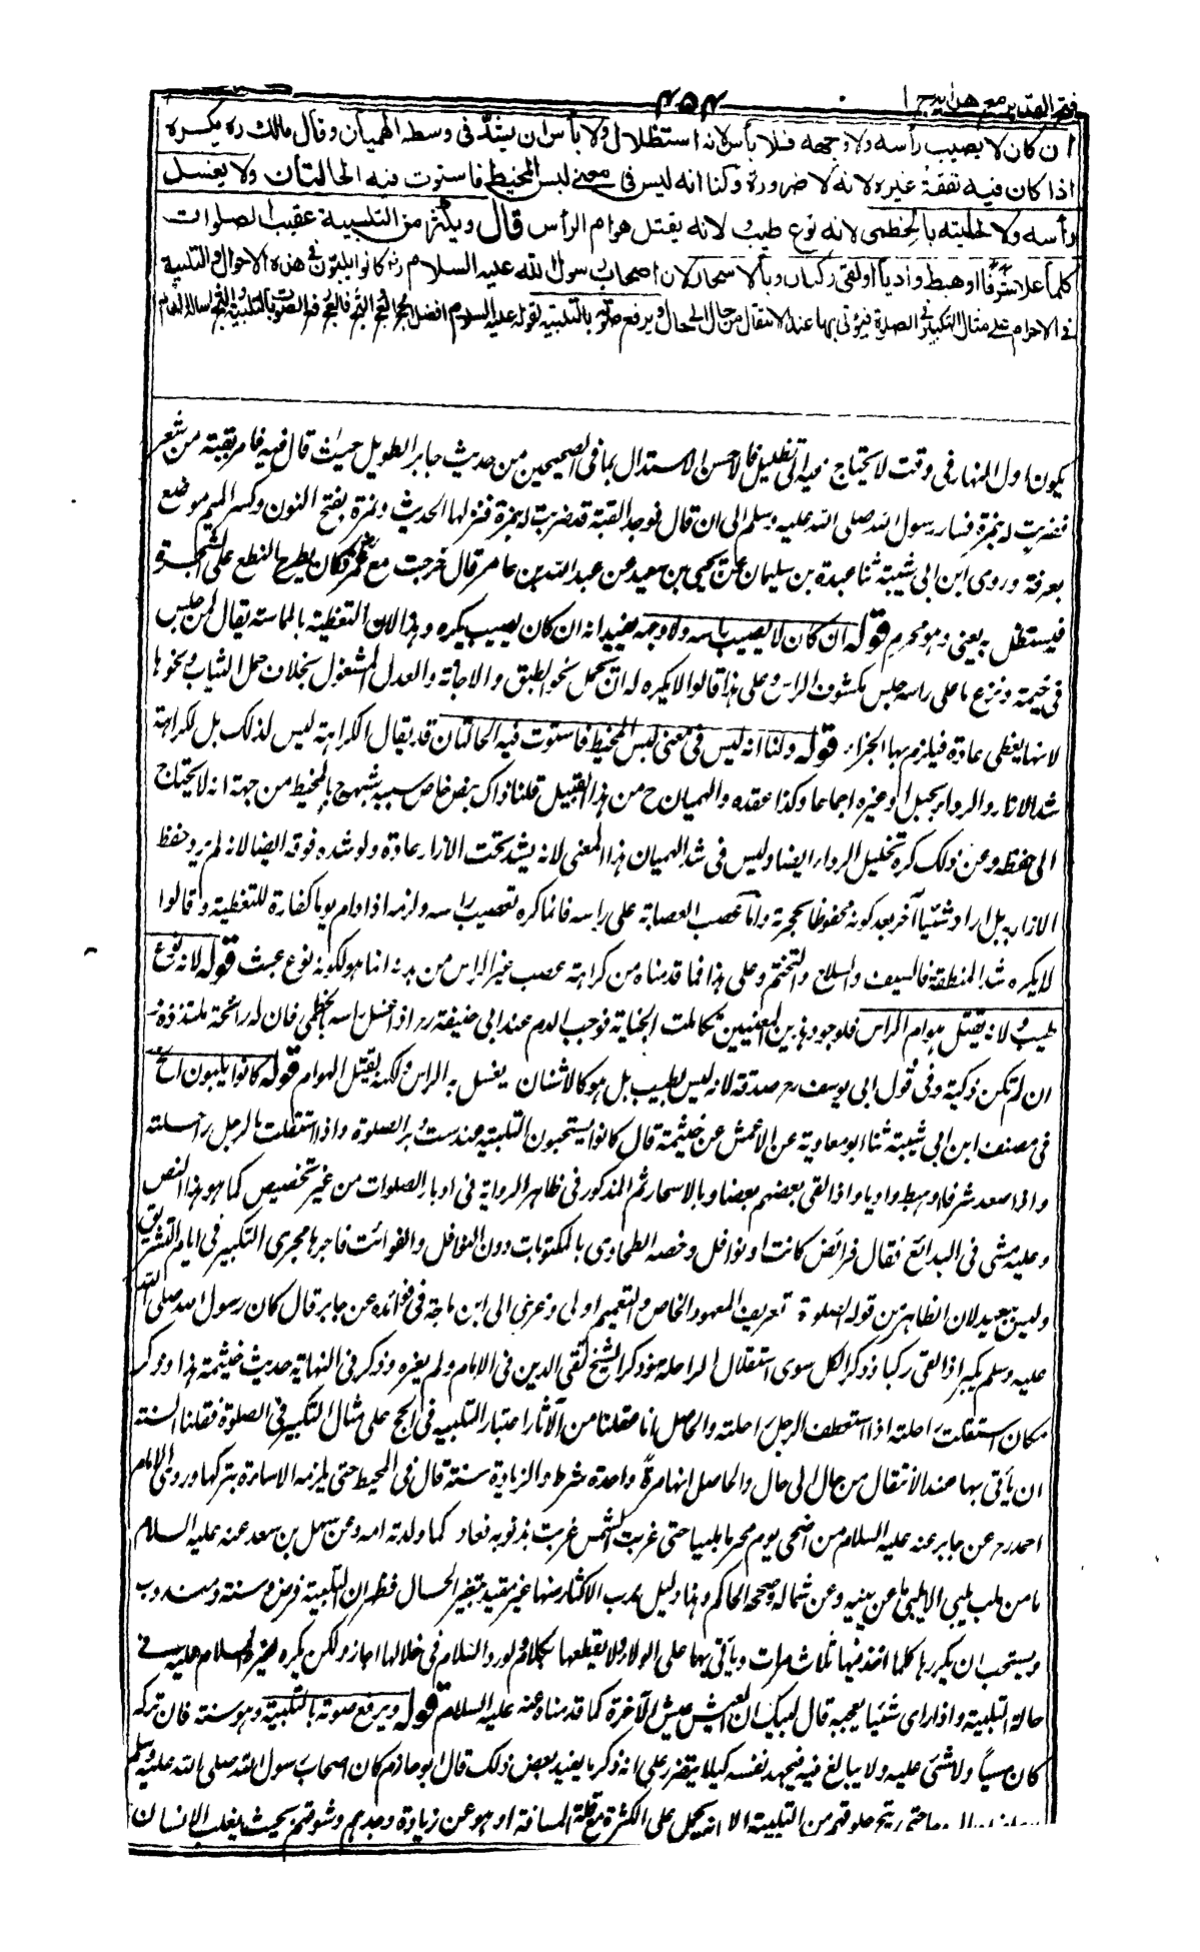 فتح القدير مع هدايه ج ا
۴۵۴
ان كان لا يصيب رأسه ولا وجهه فلا بأس لانه استظلال ولا بأس ان يشدّ في وسطه الهميان وقال مالك ره يكره
اذا كان فيه نفقة غيره لانه لا ضرورة ولنا انه ليس في معنى لبس المخيط فاستوت فيه الحالتان ولا يغسل
رأسه ولا لحيته بالخطمى لانه نوع طيب لانه يقتل هوام الرأس قال ويكثر من التلبية عقيب الصلوات
كلما علا شرفًا او هبط واديا او لقى ركبان وبالاسحار لان اصحاب رسول الله عليه السلام رض كانوا يلبون فى هذه الاحوال والتلبية
فى الاحرام على مثال التكبير فى الصلوة فيؤتى بها عند الانتقال من حال الى حال ويرفع صوته بالتلبية لقوله عليه السلام افضل الحج العج والثج فالعج رفع الصوت بالتلبية والثج اسالة الدم
يكون اول النهار فى وقت لا يحتاج فيه الى تظليل فالاحسن الاستدلال بما فى الصحيحين من حديث جابر الطويل حيث قال فيه فامر بقبة من شعر
فضربت له بنمرة فسار رسول الله صلى الله عليه وسلم الى ان قال فوجد القبة قد ضربت له بنمرة فنزل بها الحديث ونمرة بفتح النون وكسر الميم موضع
بعرفة وروى ابن ابى شيبة ثنا عبدة بن سليمان عن يحيى بن سعيد عن عبد الله بن عامر قال خرجت مع عمر فكان يطرح النطع على الشجرة
فيستظل به يعنى وهو محرم قوله ان كان لا يصيب راسه ولا وجهه يفيد انه ان كان يصيب يكره وهذا لان التغطية بالمماسة يقال لمن جلس
فى خيمة ونزع ما على راسه جلس مكشوف الراس وعلى هذا قالوا لا يكره له ان يحمل نحو الطبق والاجانة والعدل المشغول بخلاف حمل الثياب ونحوها
لانها يغطى عادة فيلزم بها الجزاء قوله ولنا انه ليس فى معنى لبس المخيط فاستوت فيه الحالتان قد يقال الكراهة ليس لذلك بل لكراهة
شد الازار والرداء بحبل او غيره اجماعا وكذا عقده والهميان ح من هذا القبيل قلنا ذاك بنص خاص سببه شبهه ح بالمخيط من جهة انه لا يحتاج
الى حفظه وعن ذلك كره تخليل الرداء ايضا وليس فى شد الهميان هذا المعنى لانه يشد تحت الازار عادة ولو شده فوقه ايضا لانه لم يرد حفظ
الازار به بل اراد شئيا آخر بعد كونه محفوظا بحجزته واما عصب العصابة على راسه فانما كره تعصيب راسه ولزمه اذا دام يوما كفارة للتغطية وقالوا
لا يكره شد المنطقة فالسيف والسلاح والتختم وعلى هذا فما قدمناه من كراهة عصب غير الراس من بدنه انما هو لكونه نوع عبث قوله لانه نوع
طيب ولانه يقتل هوام الراس فلوجود هذين المعنيين تكاملت الجناية فوجب الدم عند ابى حنيفة رح اذا غسل راسه بالخطمى فان له رائحة ملتذة
ان لم تكن ذكية وفى قول ابى يوسف رح صدقة لانه ليس بطيب بل هو كالاشنان يغسل به الراس ولكنه يقتل الهوام قوله كانوا يلبون الخ
فى مصنف ابن ابى شيبة ثنا ابو معاوية عن الاعمش عن خيثمة قال كانوا يستحبون التلبية عند ست دبر الصلوة واذا استقلت بالرجل راحلته
واذا صعد شرفا او هبط واديا واذا لقى بعضهم بعضا وبالاسحار ثم المذكور فى ظاهر الرواية فى ادبار الصلوات من غير تخصيص كما هو هذا النص
وعليه مشى فى البدائع فقال فرائض كانت او نوافل وخصه الطحاوى بالمكتوبات دون النوافل والفوائت فاجراها مجرى التكبير فى ايام التشريق
وليس ببعيد لان الظاهر من قوله الصلوة تعريف المعهود الخاص والتعميم اولى وعزى الى ابن ناجية فى فوائده عن جابر قال كان رسول الله صلى الله
عليه وسلم يكبر اذا لقى ركبا وذكر الكل سوى استقلال الراحلة وذكر الشيخ تقى الدين فى الامام ولم يعزه وذكر فى النهاية حديث خيثمة هذا وذكر
مكان استقلت راحلته اذا استعطف الرجل راحلته والحاصل انا عقلنا من الآثار اعتبار التلبيه فى الحج على مثال التكبير فى الصلوة فقلنا السنة
ان يأتى بها عند الانتقال من حال الى حال والحاصل انها مرة واحدة شرط والزيادة سنة قال فى المحيط حتى يلزمه الاساءة بتركها وروى الامام
احمد رح عن جابر عنه عليه السلام من اضحى يوم محرما ملبيا حتى غربت الشمس غربت بذنوبه فعاد كما ولدته امه وعن سهل بن سعد عنه عليه السلام
ما من ملب يلبى الا لبى ما عن يمينه وعن شماله وصححه الحاكم وهذا دليل ندب الاكثار منها غير مقيد بتغير الحال فظهر ان التلبية فرض وسنة ومندوب
ويستحب ان يكررها كلما اخذ فيها ثلاث مرات ويأتى بها على الولاء ولا يقطعها بكلام ولو رد السلام فى خلالها جاز ولكن يكره لغيره السلام عليه فى
حالة التلبية واذا راى شئيا يعجبه قال لبيك ان العيش عيش الآخرة كما قدمناه عنه عليه السلام قوله ويرفع صوته بالتلبية وهو سنة فان تركه
كان مسيأ ولا شئ عليه ولا يبالغ فيه فيجهد نفسه كيلا يتضرر على انه ذكر ما يفيد بعض ذلك قال ابو حازم كان اصحاب رسول الله صلى الله عليه وسلم
حتى يبح حلوقهم من التلبية الا انه يحمل على الكثرة مع قلة المسافة او هو عن زيادة وجدهم وشوقهم بحيث يغلب الانسان